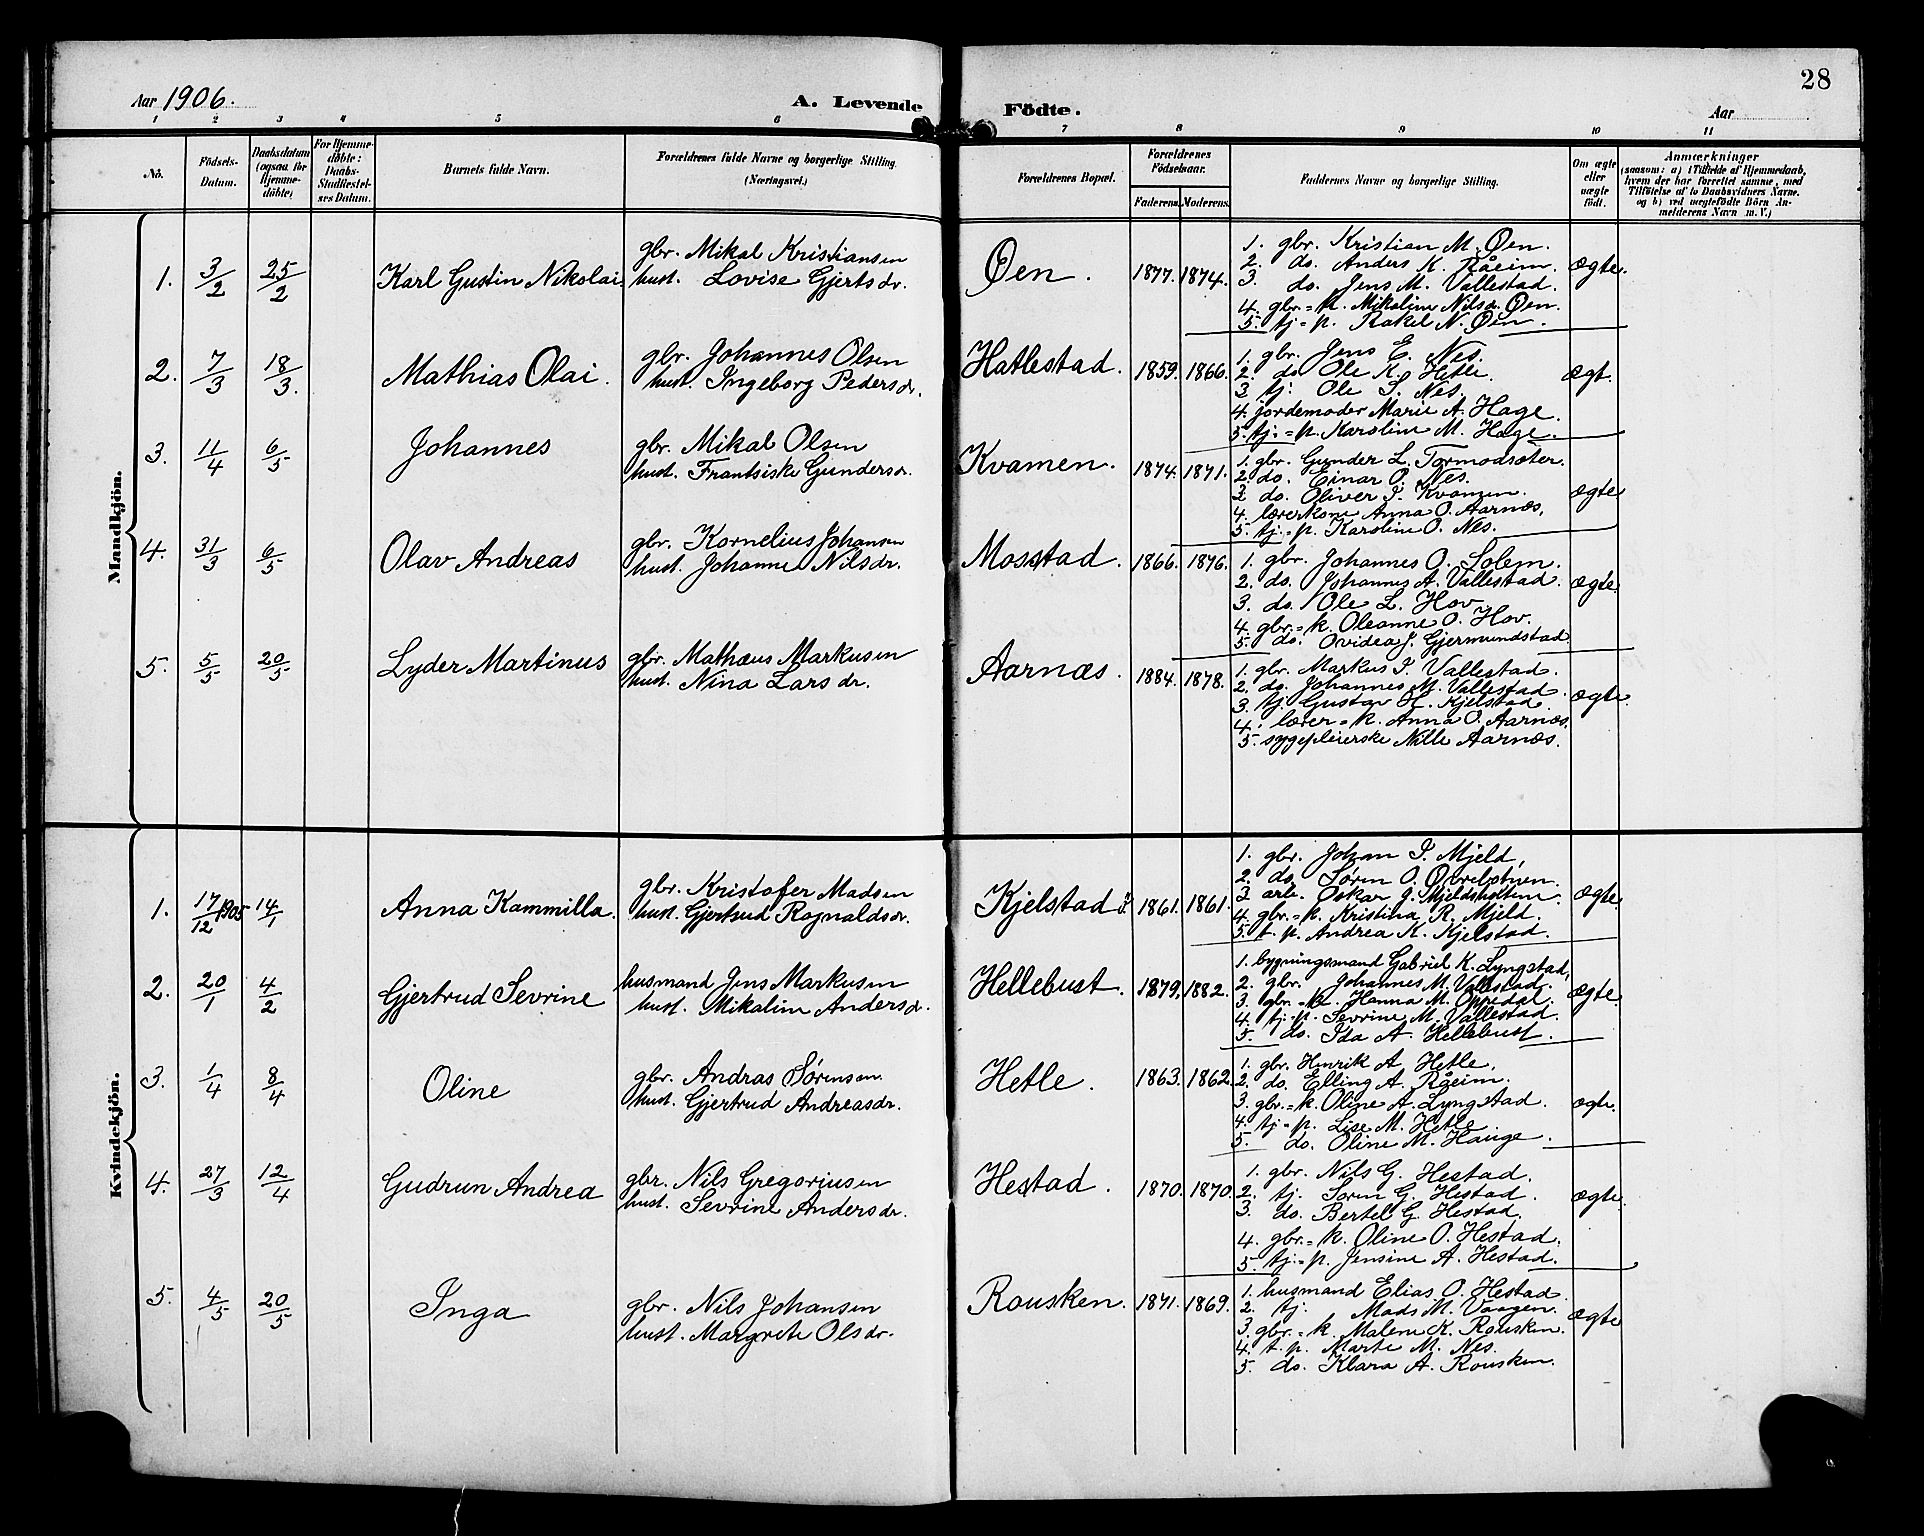 28
Aar 1906.
A. Levende Födte.
Aar
1 2 3 4 5 6 7 8 9 10 11
No.
Födsels-Datum.
Daabsdatum (ogsaa for Hjemme-döbte)
For Hjemme-døbte: Daabs-Stadfæstel-ses Datum.
Barnets fulde Navn.
Forældrenes fulde Navne og borgerlige Stilling. (Næringsvei.)
Forældrenes Bopæl.
Forældrenes Födselsaar.
Faderens. Moderens.
Faddernes Navne og borgerlige Stilling.
Om ægte eller uægte födt.
Anmærkninger
(saasom: a) i Tilfælde af Hjemmedaab, hvem der har forrettet samme, med Tilföielse af to Daabsvidners Navne. og b) ved uægtefödte Börn An-melderens Navn m. V.)
Mandkjön.
1. 3/2 25/2 Karl Gustin Nikolai gbr. Mikal Kristiansen
hust. Lovise Gjertsdr.
Øen. 1877. 1874.
1. gbr. Kristian M. Øen.
2. do. Anders K. Råeim.
3. do. Jens M. Vallestad.
4. gbr.=k. Mikaline Nilsdr. Øen.
5. tj=p. Rakel N. Øen.
ægte.
2. 7/3 18/3. Mathias Olai. gbr. Johannes Olsen
hust. Ingeborg Pedersdr.
Hatlestad. 1859. 1866.
1. gbr. Jens E. Nes.
2. do Ole K. Hetle.
3 tj. Ole S. Nes.
4. jordemoder Marie A. Hage.
5. tj.=p. Karoline M. Hage.
ægt.
3. 11/4 6/5 Johannes gbr. Mikal Olsen
hust. Frantsiske Gundersdr.
Kvamen. 1874. 1871.
1. gbr. Gunder L. Tormodsæter.
2. do. Einar O. Nes.
3. do. Oliver I. Kvamen.
4. lærerkone Anna O. Aarnæs.
5. tj.=p. Karoline O. Nes.
ægte
4. 31/3 6/5 Olav Andreas gbr. Kornelius Johansen
hust. Johanne Nilsdr.
Mosstad. 1866. 1876.
1. gbr. Johannes O. Solem.
2. do. Johannes A. Vallestad.
3. do. Ole L. Hov
4. gbr.=k. Oleanne O. Hov.
5. do. Ovidea J. Gjermundstad
ægte.
5. 5/5 20/5 Lyder Martinus gbr. Mathæus Markusen
hust. Nina Larsdr.
Aarnæs. 1884. 1878.
1. gbr. Markus I. Vallestad.
2. do. Johannes M. Vallestad.
3. tj. Gustav H. Kjelstad.
4. lærer=k. Anna O. Aarnæs.
5. sygepleierske Nille Aarnæs.
ægte.
Kvindekjön.
1. 17/12 1905 14/1 Anna Kammilla. gbr. Kristofer Madsen
hust. Gjertrud Ragnaldsdr.
Kjelstad 1861. 1861.
1. gbr. Johan I. Mjeld,
2. do. Søren O.
3 arb. Oskar J.
4. gbr.=k. Kristina R. Mjeld.
5. t. p. Andrea K. Kjelstad.
ægte.
2. 20/1 4/2 Gjertrud Sevrine husmand Jens Markusen
hust. Mikaline Andersdr.
Hellebust. 1879. 1882.
1. bygningsmand Gabriel K. Lyngstad,
2. gbr. Johannes M. Vallestad.
3. gbr.=k. Hanna M. Oppedal.
4. tj.=p. Sevrine M. Vallestad.
5. do. Ida A. Hellebust.
ægte.
3. 1/4 8/4 Oline gbr. Andras Sørensen.
hust. Gjertrud Andreasdr.
Hetle. 1863. 1862.
1. gbr. Henrik A. Hetle.
2. do. Elling A. Råeim.
3. gbr.=k. Oline A. Lyngstad.
4. tj=p. Lise M. Hetle.
5. do. Oline M. Hauge.
ægte.
4. 27/3 12/4 Gudrun Andrea gbr. Nils Gregoriusen
hust. Sevrine Andersdr.
Hestad. 1870. 1870.
1. gbr. Nils G. Hestad.
2. tj. Søren G. Hestad.
3. do. Bertel G. Hestad.
4. gbr.=k. Oline O. Hestad.
5. tj.=p. Jensine A. Hestad.
ægte.
5. 4/5 20/5 Inga gbr. Nils Johansen
hust. Margrete Olsdr.
Rousken. 1871. 1869.
1. husmand Elias O. Hestad.
2. tj. Mads M. Vaagen.
3. gbr.=k. Malene K. Rousken.
4. t. p. Marte M. Nes.
5. do. Klara A. Rousken.
ægte